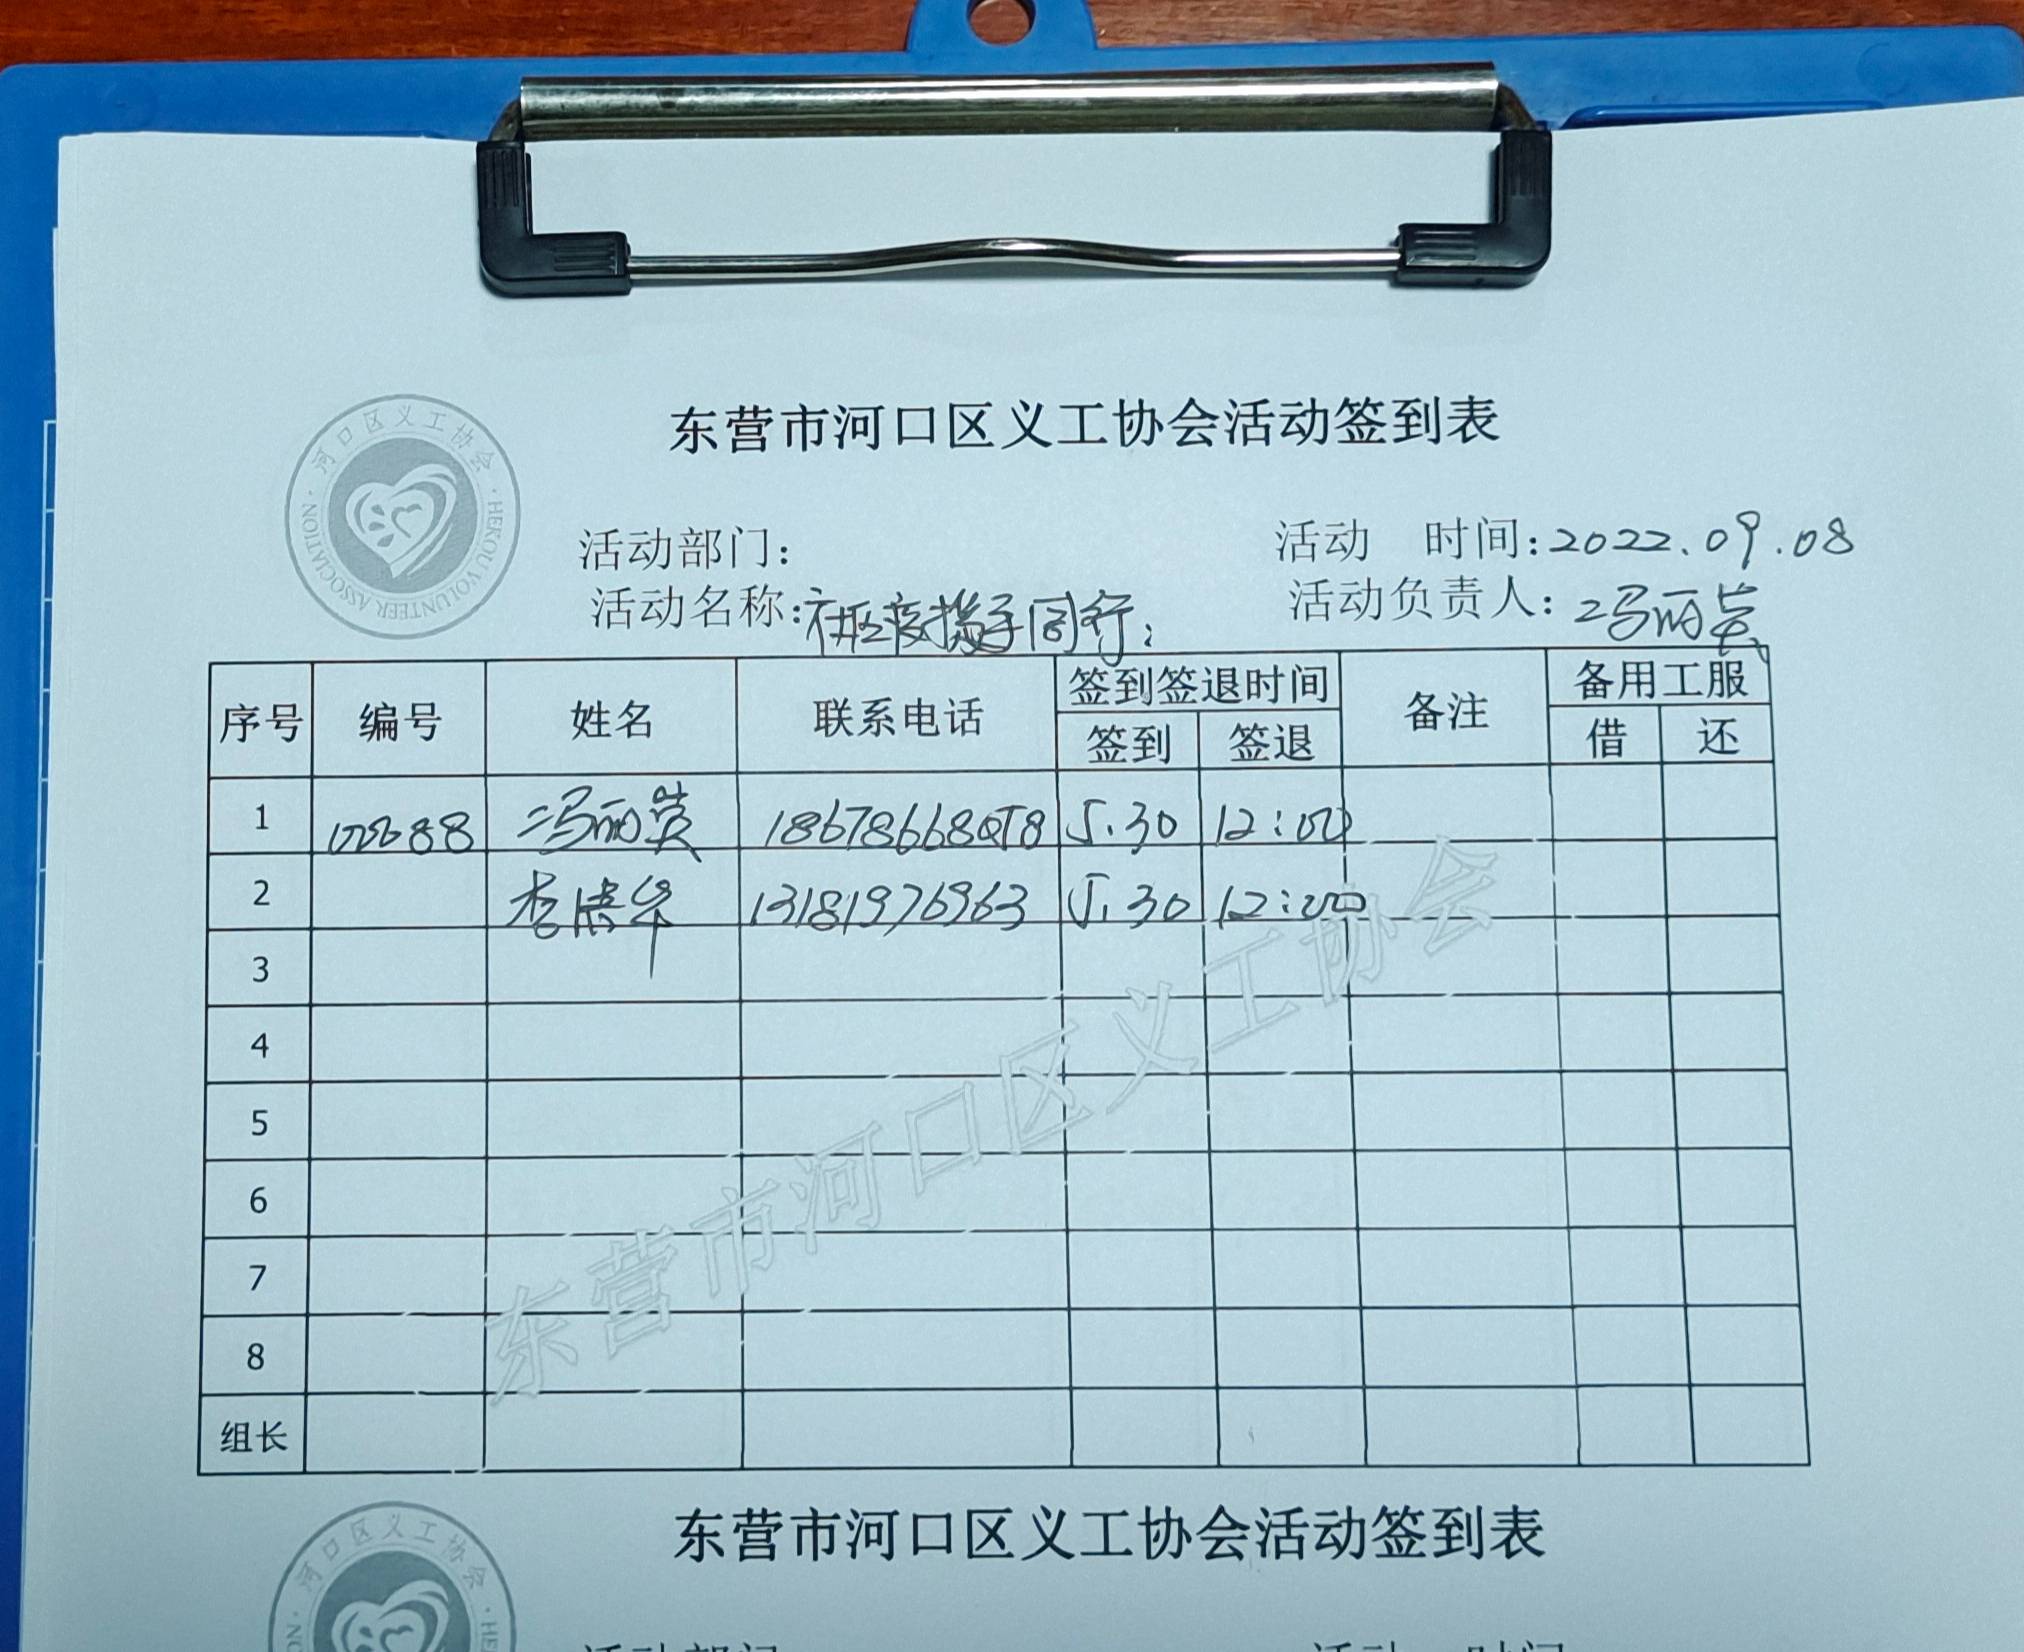 东营市河口区义工协会活动签到表
河口区义工协会
HEKOU VOLUNTEER ASSOCIATION
活动部门: 活动 时间:2022.09.08
活动名称: 携手同行 活动负责人: 冯丽英
序号 编号 姓名 联系电话 签到签退时间 备注 备用工服
签到 签退 借 还
1 冯丽英 5.30 12:00
2 13181976963 5.30 12:00
3
4
5
6
7
8
组长
东营市河口区义工协会
东营市河口区义工协会活动签到表
河口区义工协会
活动部门 活动 时间